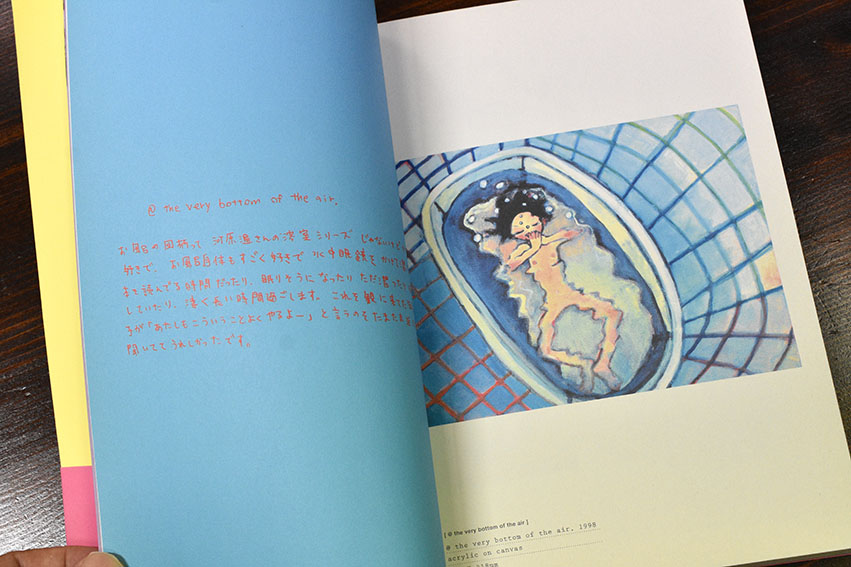 @ the very bottom of the air.
お風呂の図柄って 河原温さんの浴室シリーズ じゃないけど
好きで、お風呂自体もすごく好きで 水中眼鏡を かけて
本を読んでる時間だったり、眠りそうになったり ただ潜った
していたり、凄く長い時間過ごします。これを観に来た
子が「あたしもこういうことよくやるよー」と言うのを たまたま
聞いてて うれしかった です。
[ @ the very bottom of the air ]
@ the very bottom of the air. 1998
acrylic on canvas